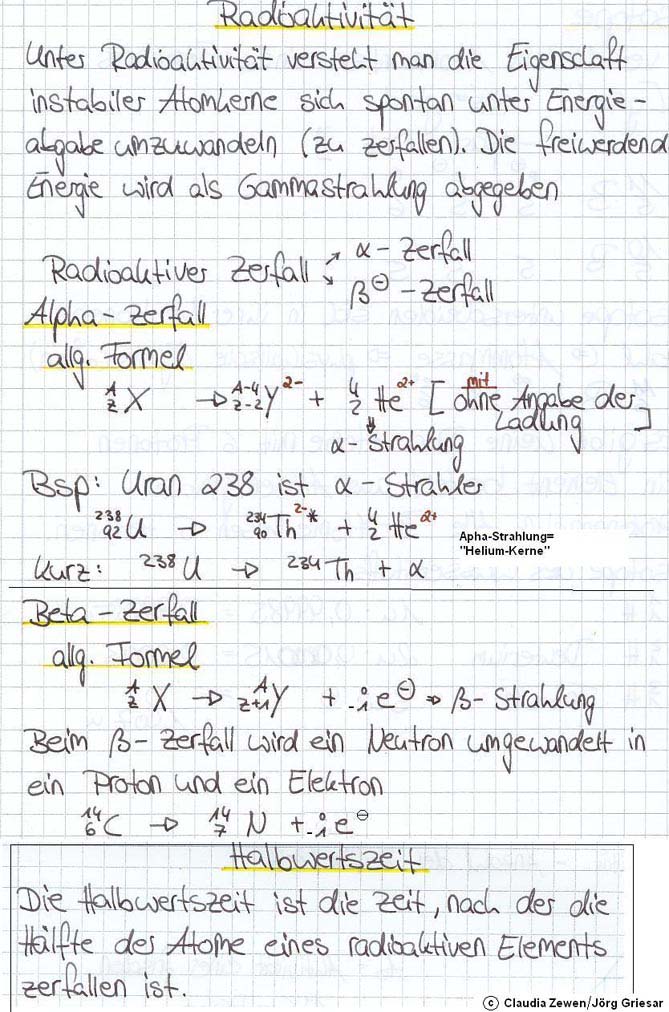 Radioaktivität
Unter Radioaktivität versteht man die Eigenschaft
instabiler Atomkerne sich spontan unter Energie-
abgabe umzuwandeln (zu zerfallen). Die freiwerdend
Energie wird als Gammastrahlung abgegeben
Radioaktiver Zerfall ↗ α - Zerfall
↘ β⊖ - Zerfall
Alpha - Zerfall
allg. Formel
ᴬ_Z X → ᴬ⁻⁴_Z-2 Y²⁻ + ⁴₂He²⁺ [mit ohne Angabe der
Ladung]
⇓
α - Strahlung
Bsp: Uran 238 ist α - Strahler
²³⁸₉₂U → ²³⁴₉₀Th²⁻* + ⁴₂He²⁺
Apha-Strahlung=
"Helium-Kerne"
kurz: ²³⁸U → ²³⁴Th + α
Beta - Zerfall
allg. Formel
ᴬ_Z X → ᴬ_Z+1 Y + ₋₁e⊖ ⇒ β - Strahlung
Beim β - Zerfall wird ein Neutron umgewandelt in
ein Proton und ein Elektron
¹⁴₆C → ¹⁴₇N + ₋₁e⊖
Halbwertszeit
Die Halbwertszeit ist die Zeit, nach der die
Hälfte der Atome eines radioaktiven Elements
zerfallen ist.
© Claudia Zewen/Jörg Griesar